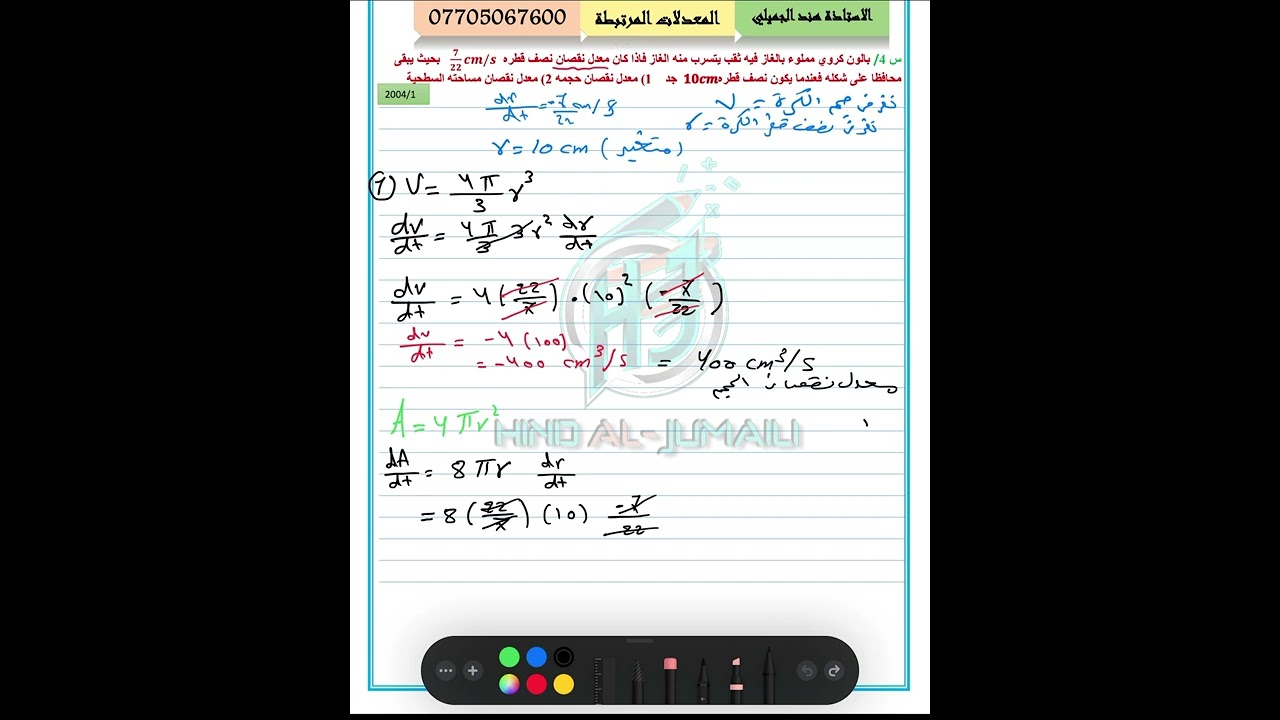 الاستاذة هند الجميلي المعدلات المرتبطة 07705067600
س 4/ بالون كروي مملوء بالغاز فيه ثقب يتسرب منه الغاز فاذا كان معدل نقصان نصف قطره 7/22 cm/s بحيث يبقى
محافظا على شكله فعندما يكون نصف قطره 10cm جد 1) معدل نقصان حجمه 2) معدل نقصان مساحته السطحية
2004/1
نفرض حجم الكرة = V
نفرض نصف قطر الكرة = r
dr/dt = -7/22 cm/s
r = 10 cm (متغير)
1) V = 4π/3 r³
dv/dt = 4π/3 3r² dr/dt
dv/dt = 4 (22/7) · (10)² (-7/22)
dv/dt = -4 (100)
= -400 cm³/s = 400 cm³/s
معدل نقصان الحجم
A = 4πr²
HIND AL-JUMAILI
dA/dt = 8πr dr/dt
= 8 (22/7) (10) -7/22